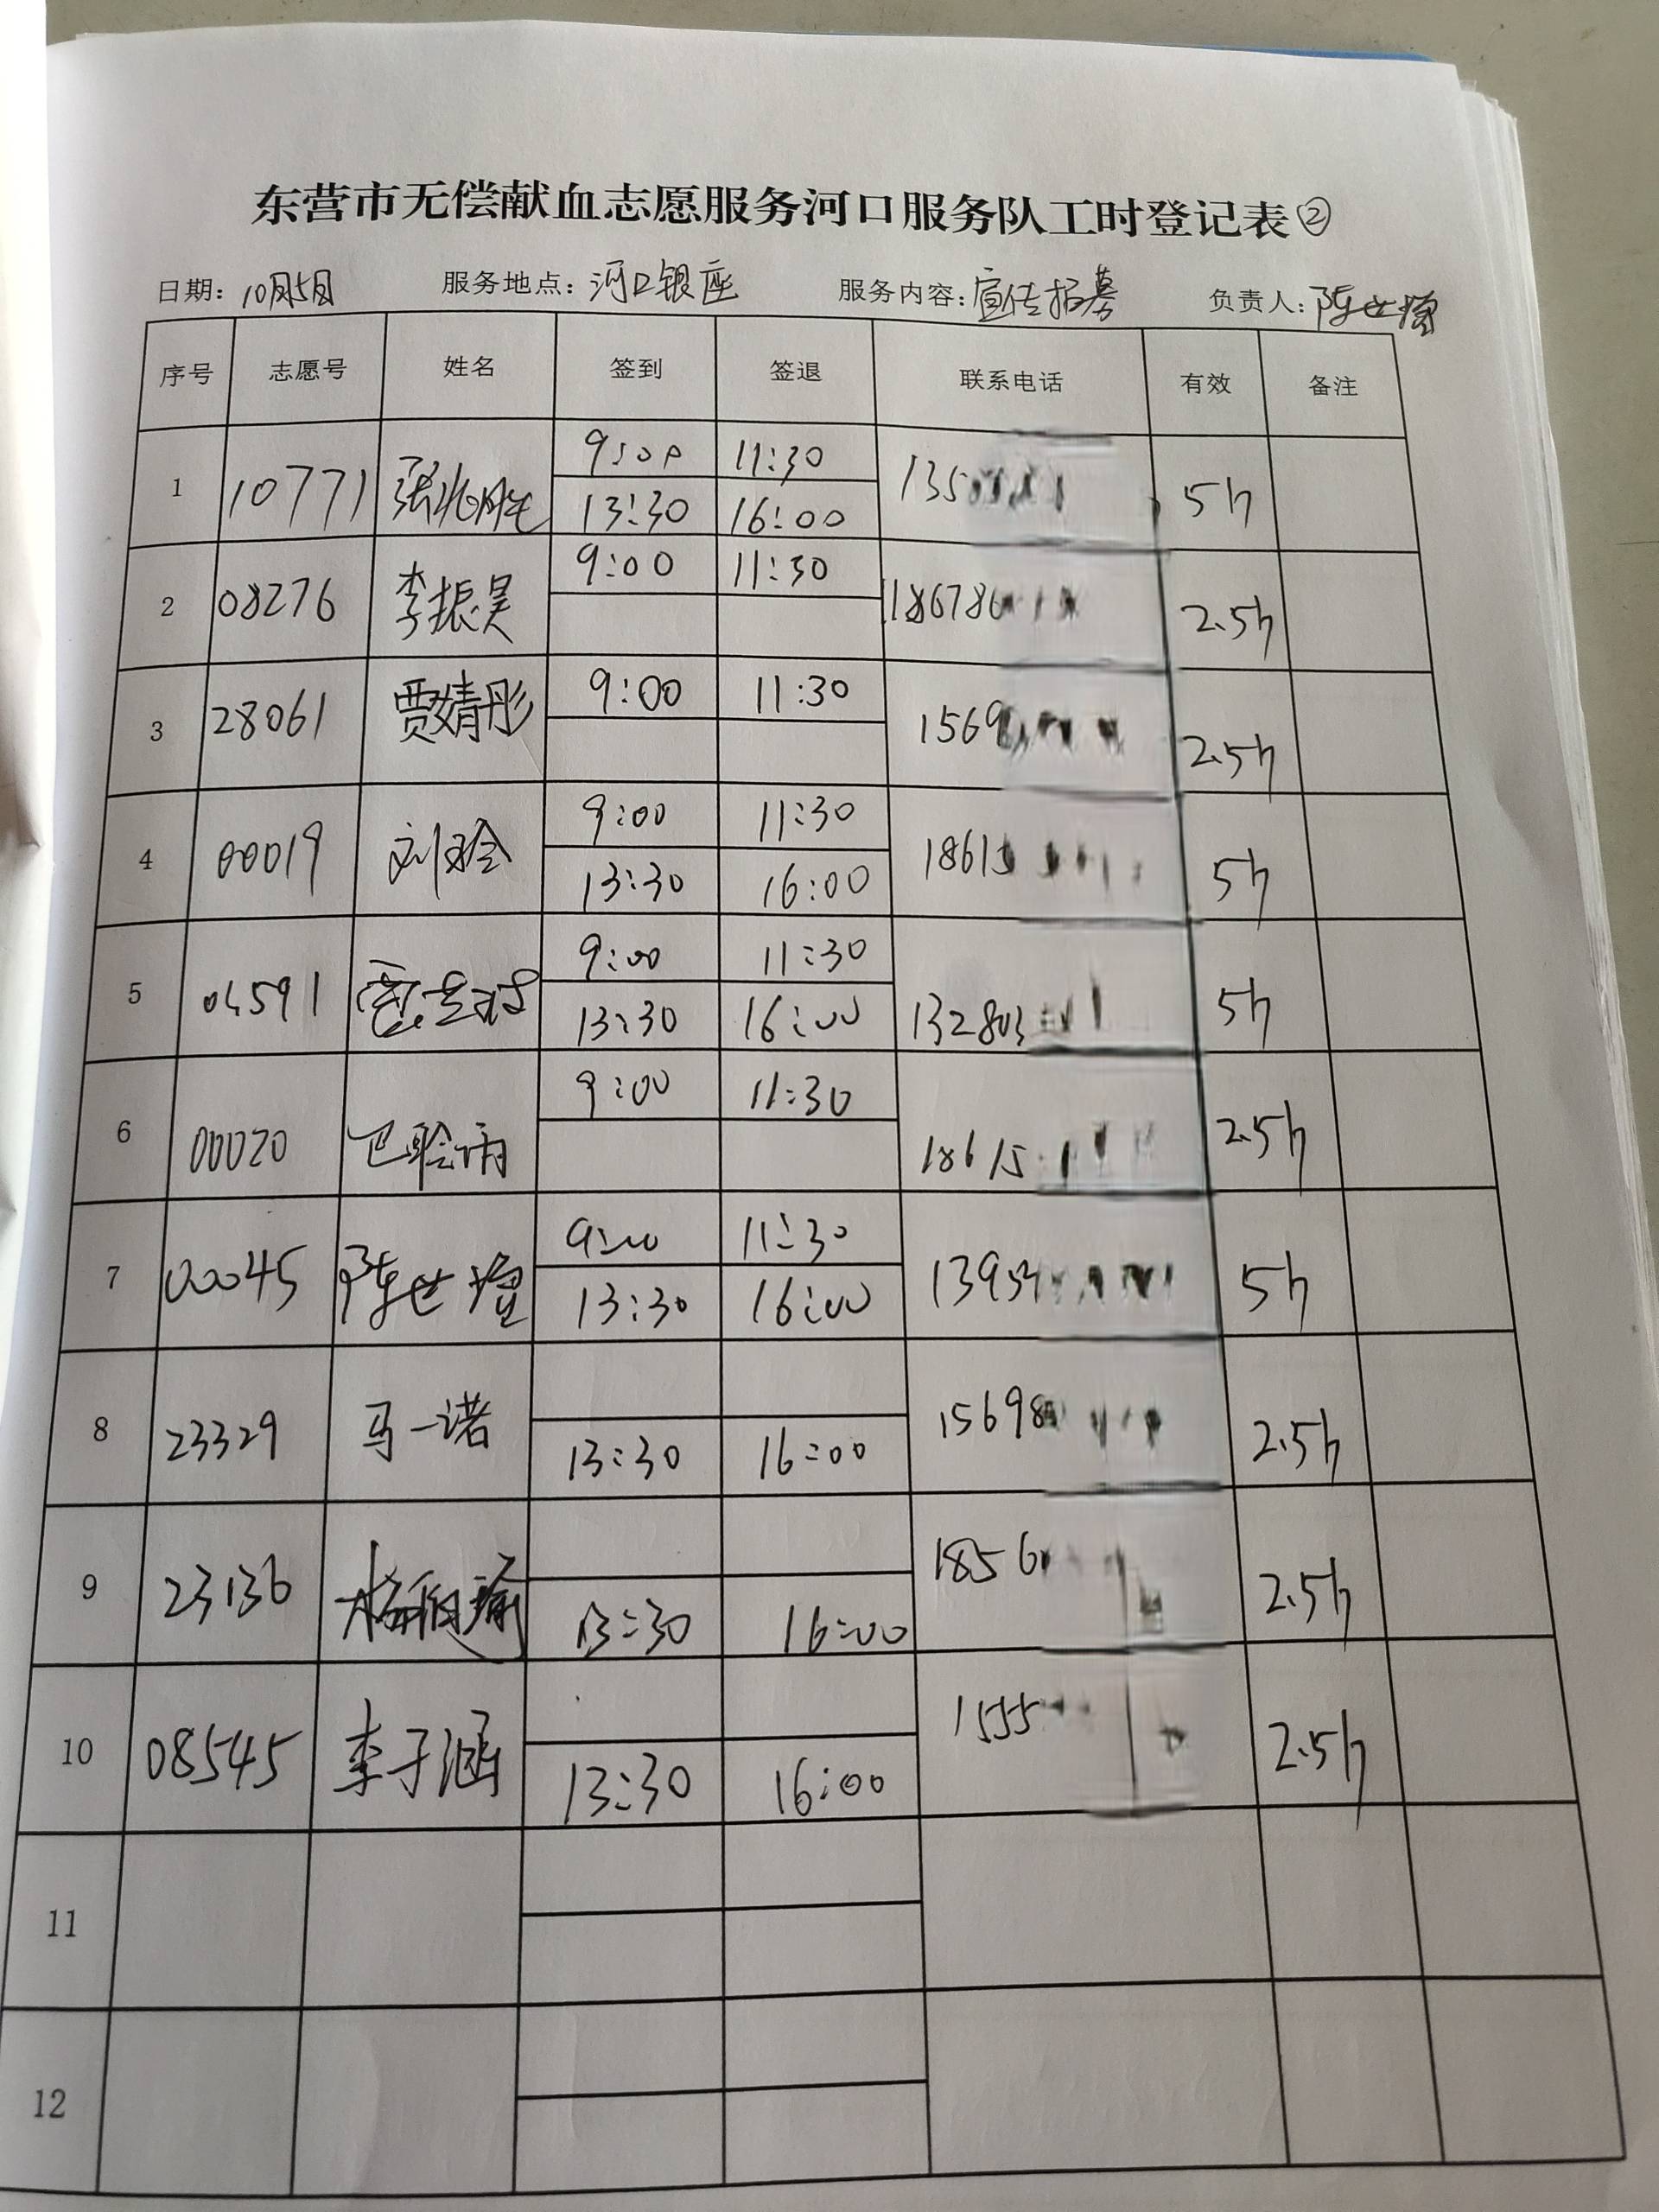 东营市无偿献血志愿服务河口服务队工时登记表②
日期：10月5日 服务地点：河口银座 服务内容：宣传招募 负责人：陈世
序号 志愿号 姓名 签到 签退 联系电话 有效 备注
9:00 11:30
1 10771 张兆胜 135 5h
13:30 16:00
9:00 11:30
2 08276 李振昊 186786 2.5h
9:00 11:30
3 28061 贾婧彤 1569 2.5h
9:00 11:30
4 00019 刘玲 1861 5h
13:30 16:00
9:00 11:30
5 04591 132803 5h
13:30 16:00
9:00 11:30
6 00020 18615 2.5h
9:00 11:30
7 00045 陈世 1395 5h
13:30 16:00
8 23329 马一诺 15698 2.5h
13:30 16:00
9 23136 1856 2.5h
13:30 16:00
10 08545 李子涵 1555 2.5h
13:30 16:00
11
12